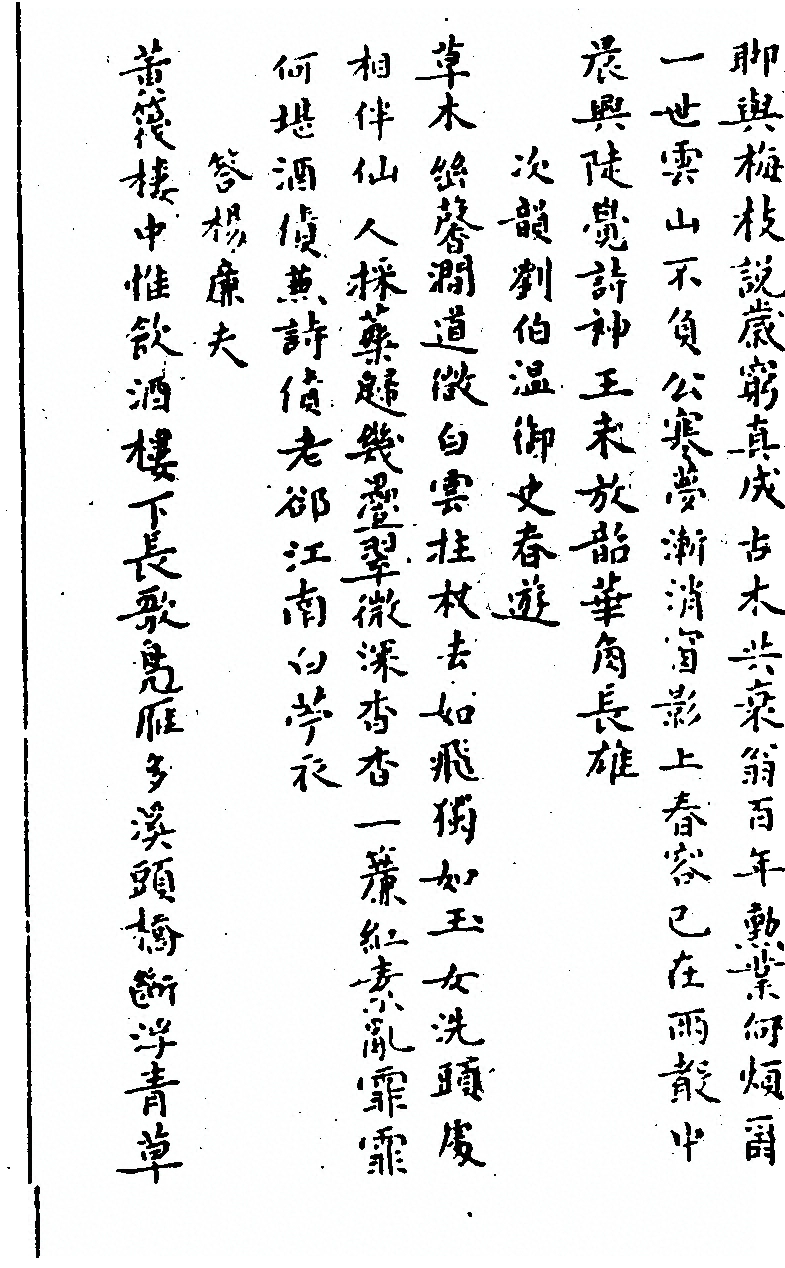 聊與梅枝說歲窮真成古木共衰翁百年勲業何煩爾
一世雲山不負公寒夢漸消窗影上春容已在雨散中
晨興陡覺詩神王未放韶華角長雄
次韻劉伯温御史春遊
草木幽馨澗道微白雲拄杖去如飛獨如玉女洗頭處
相伴仙人採藥歸幾疊翠微深杳杳一簾紅素亂霏霏
何堪酒債兼詩債老郤江南白苧衣
答楊廉夫
黃筏樓中惟飲酒樓下長歌鳧雁多溪頭橋斷浮青草